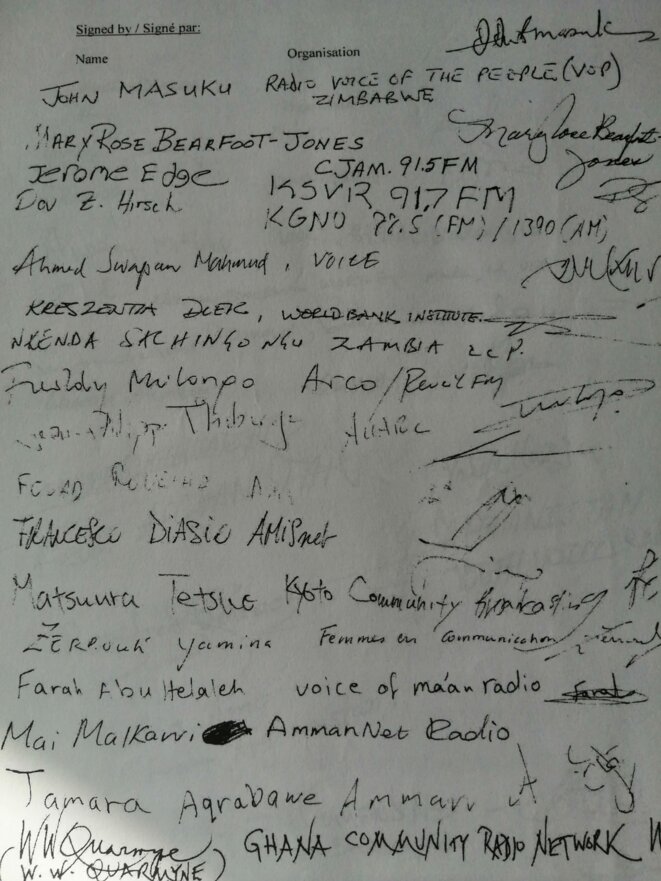 Signed by / Signé par:
Name Organisation
JOHN MASUKU RADIO VOICE OF THE PEOPLE (VOP)
ZIMBABWE
MARY ROSE BEARFOOT-JONES
Mary Rose Bearfoot-
Jones
Jerome Edge CJAM. 91.5 FM
KSVR 91.7 FM
Dov Z. Hirsch
KGNU (FM) / 1390 (AM)
Ahmed Swapan Mahmud, VOICE
KRESZENTIA, WORLD BANK INSTITUTE
ZAMBIA
Freddy Mulongo Arco /
Thibuge AMARC
FOUAD
FRANCESCO DIASIO AMISnet
Matsuura Tetsuo Kyoto Community Broadcasting
ZERROUKI Yamina Femmes en communication
Farah Abu Helaleh voice of ma'an radio Farah
Mai Malkawi AmmanNet Radio
Tamara Aqrabawe Amman
WW Quarmyne GHANA COMMUNITY RADIO NETWORK
(W. W. QUARMYNE)